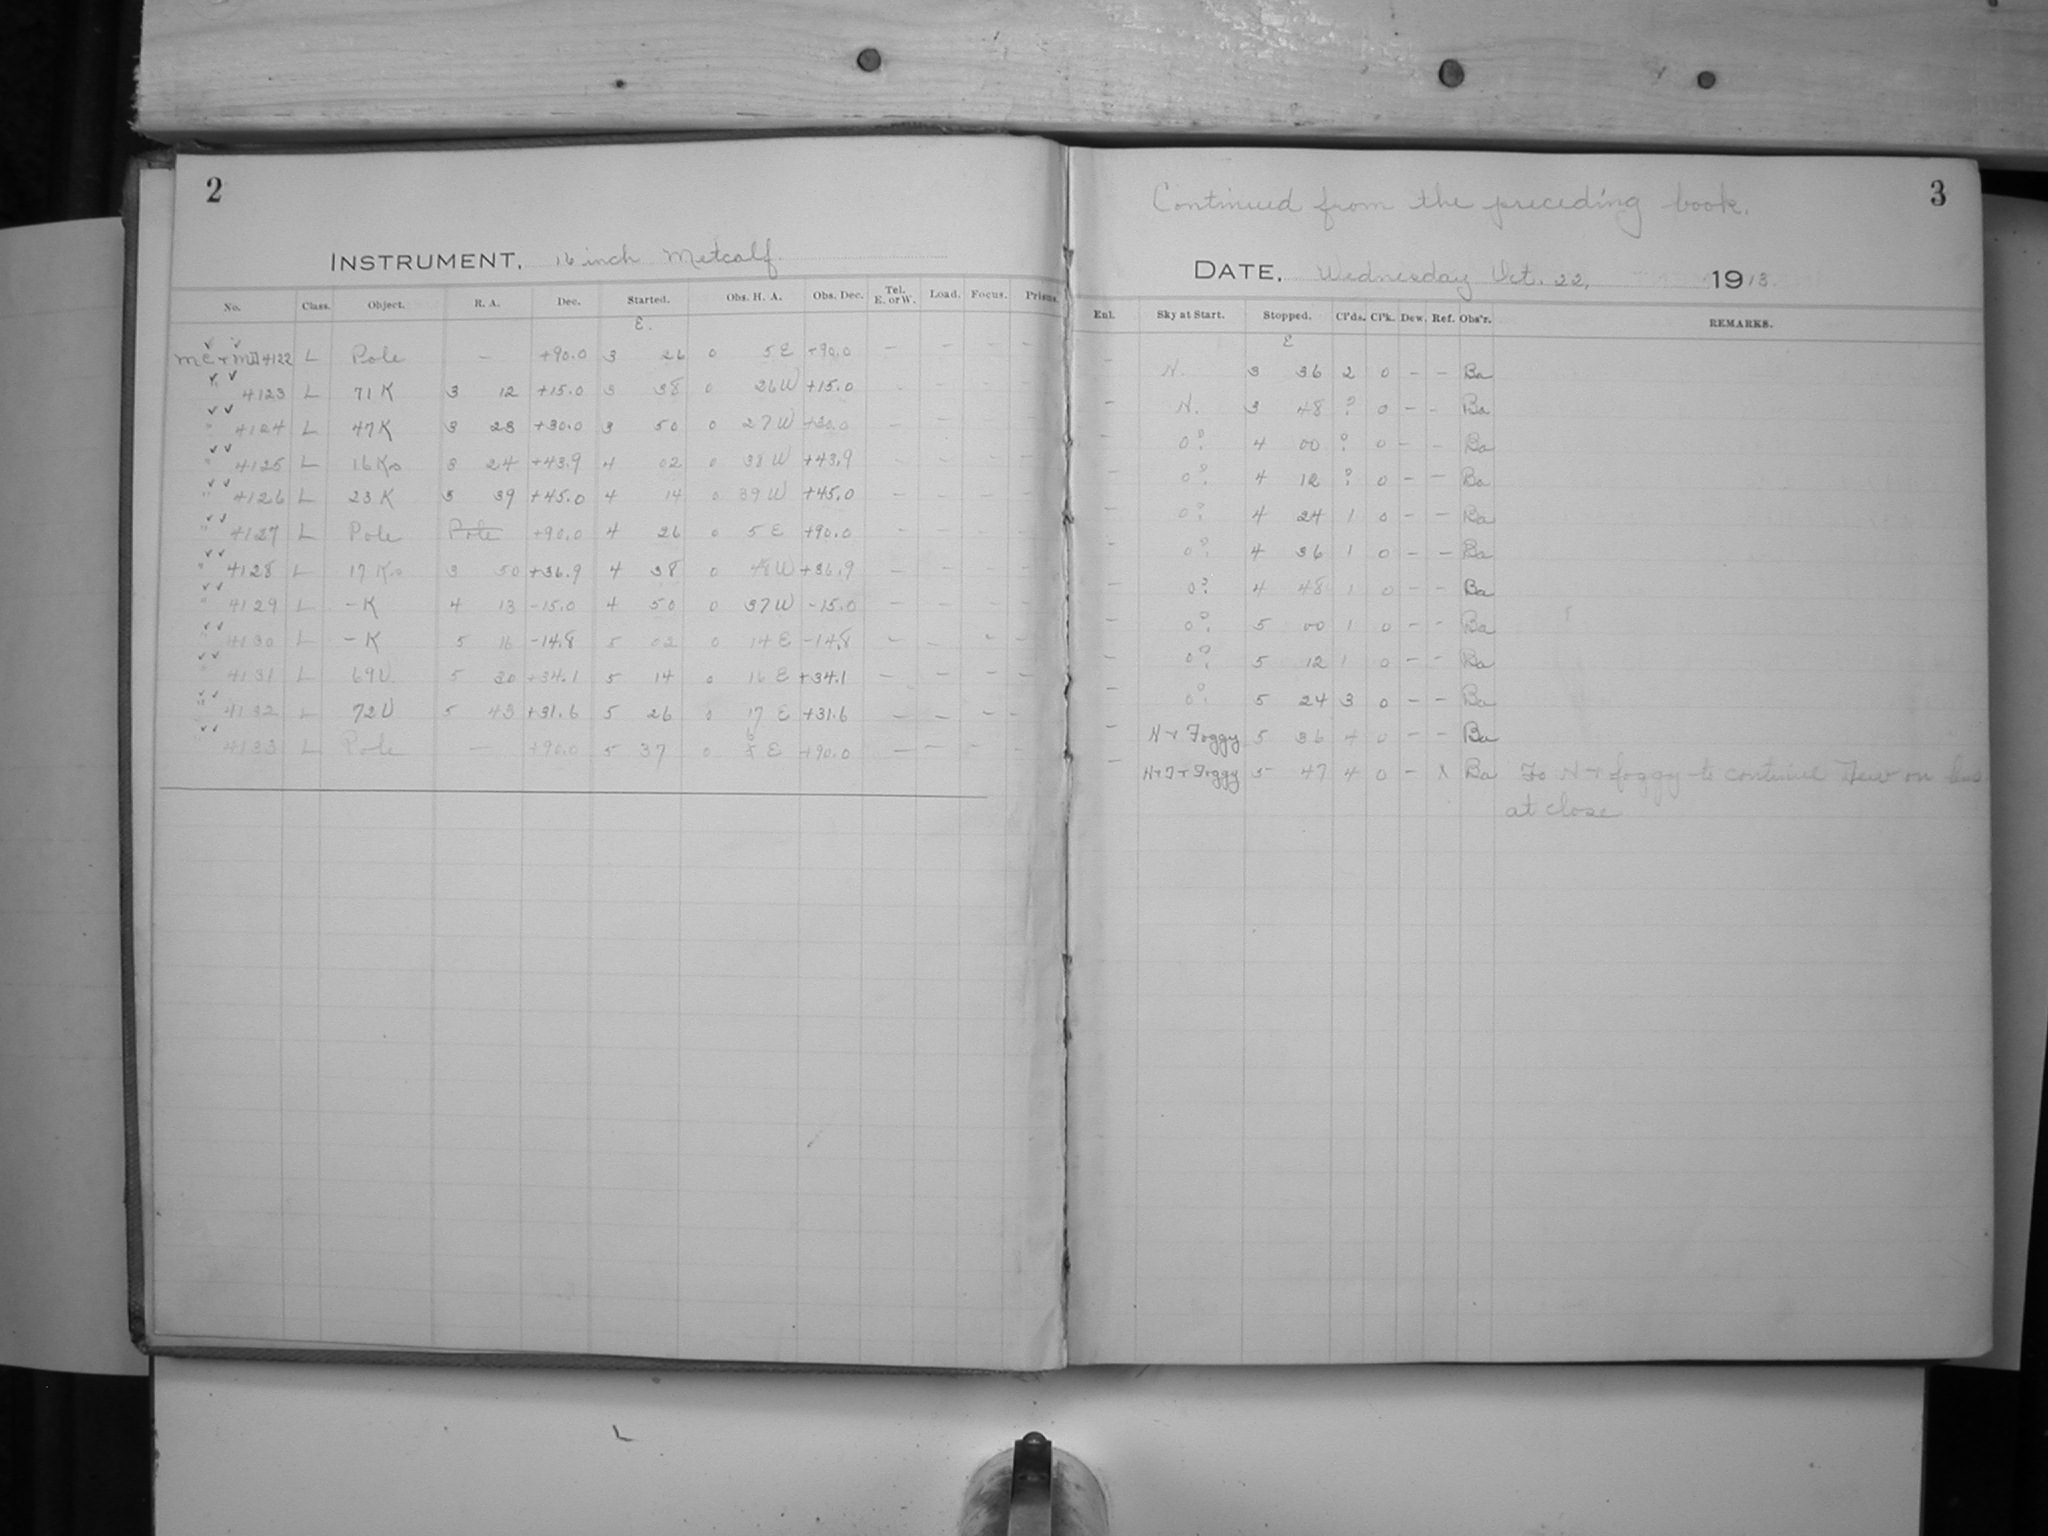 2
INSTRUMENT, 16 inch Metcalf.
No. Class. Object. R. A. Dec. Started. Obs. H. A. Obs. Dec. Tel. E. or W. Load. Focus. Prisms.
E.
4122 L Pole — +90.0 3 26 0 5 E +90.0 — — — —
" 4123 L 71 K 3 12 +15.0 3 38 0 26 W +15.0 - - - -
" 4124 L 47 K 3 23 +30.0 3 50 0 27 W +30.0 — - - -
" 4125 L 16 Ko 3 24 +43.9 4 02 0 38 W +43.9 - - - -
" 4126 L 23 K 3 39 +45.0 4 14 0 39 W +45.0 — — — —
" 4127 L Pole Pole +90.0 4 26 0 5 E +90.0 — — — —
" 4128 L 17 Ko 3 50 +36.9 4 38 0 48 W +36.9 — — — —
" 4129 L - K 4 13 -15.0 4 50 0 37 W -15.0 — — — —
" 4130 L - K 5 16 -14.8 5 02 0 14 E -14.8 — — — —
" 4131 L 69 U 5 30 +34.1 5 14 0 16 E +34.1 — — — —
" 4132 L 72 U 5 43 +31.6 5 26 0 17 E +31.6 — — — —
" 4133 L Pole — +90.0 5 37 0 E +90.0 — — — —
3
Continued from the preceding book.
DATE, Wednesday Oct. 22, 1913.
Enl. Sky at Start. Stopped. Cl'ds. Cl'k. Dew. Ref. Obs'r. REMARKS.
E
— N. 3 36 2 0 - - Ba
— N. 3 48 ? 0 - - Ba
- 0? 4 00 ? 0 - - Ba
- 0? 4 12 ? 0 - - Ba
- 0? 4 24 1 0 - - Ba
- 0? 4 36 1 0 - - Ba
- 0? 4 48 1 0 - - Ba
- 0? 5 00 1 0 - - Ba
- 0? 5 12 1 0 - - Ba
- 0? 5 24 3 0 - - Ba
- H + Foggy 5 36 4 0 - - Ba
- Foggy 5 47 4 0 - Ba To foggy to continue Dew on
at close